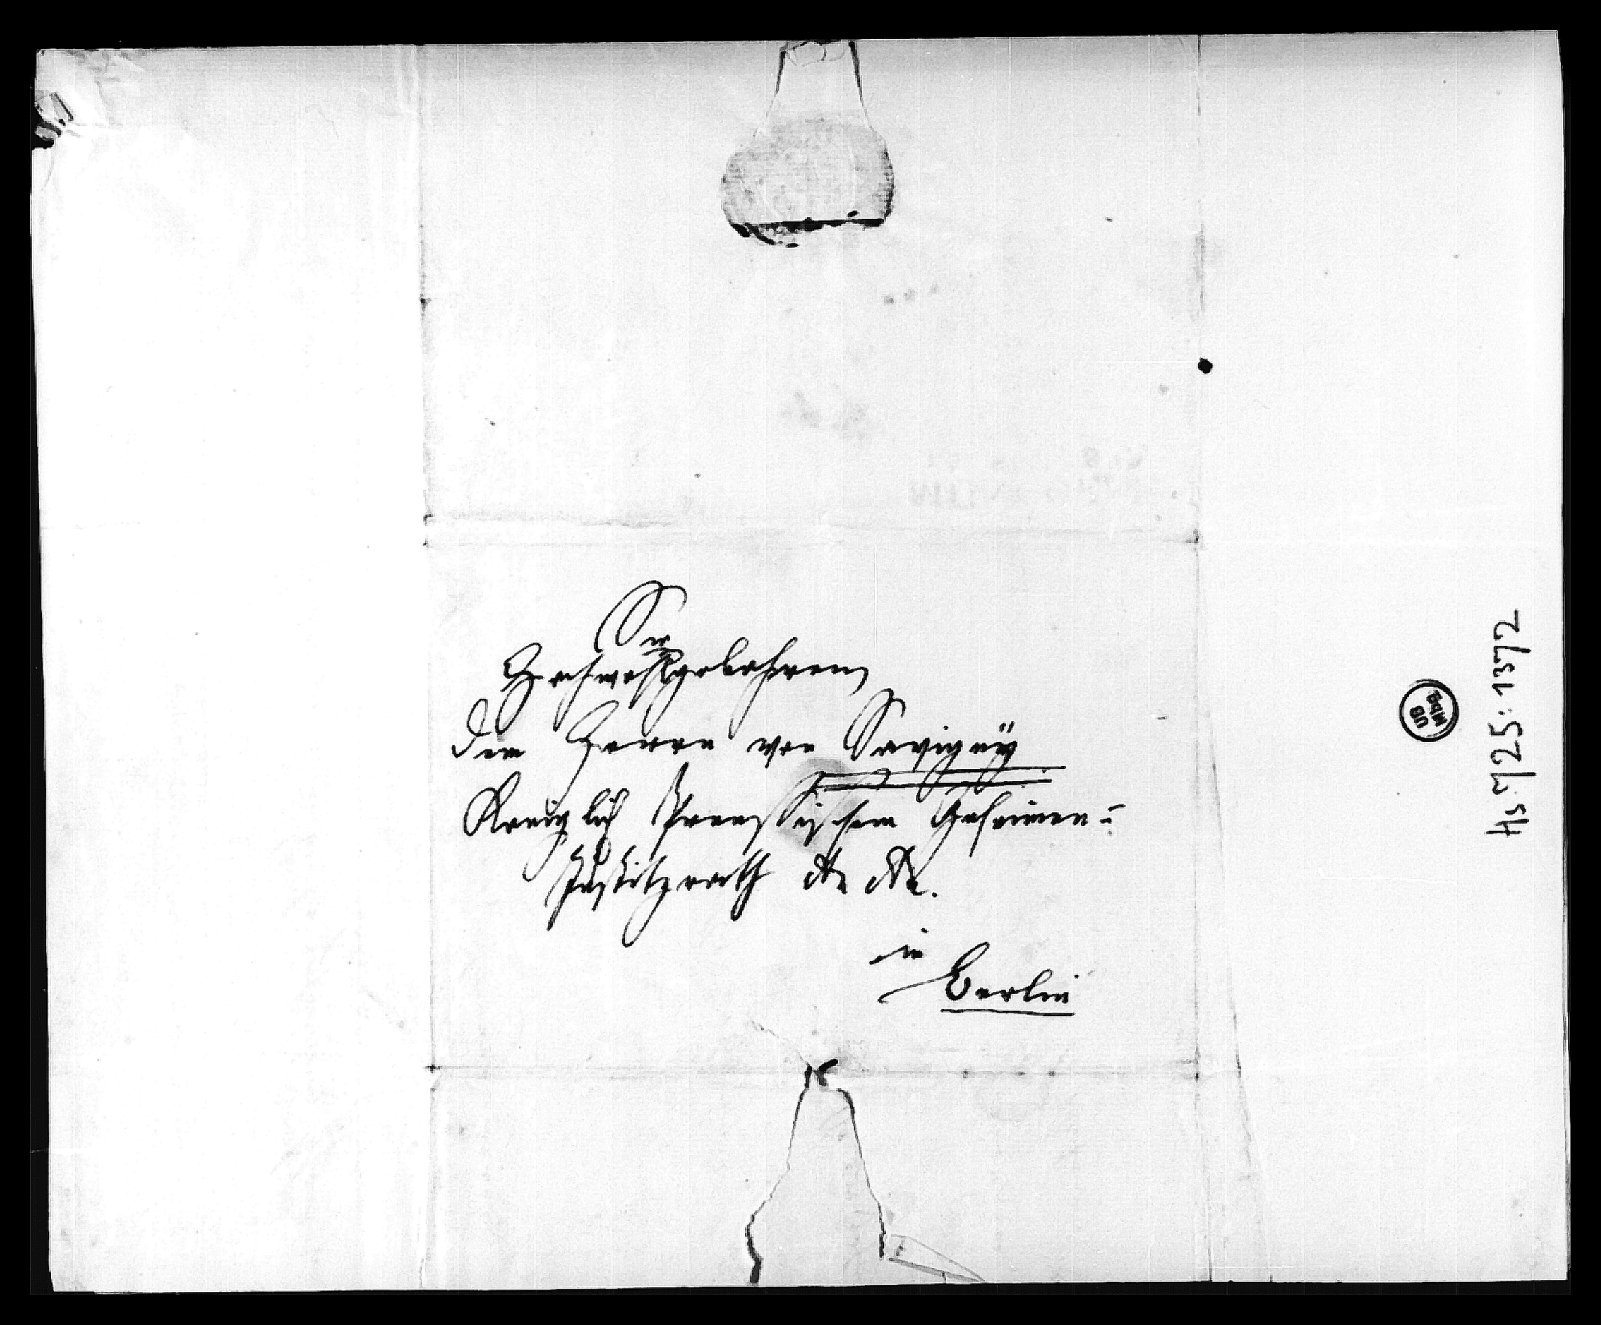 Sr
Hochwohlgebohren
dem Herrn von Savigny
Königlich Preussischem Geheimen-
Justitzrath etc etc.
in
Berlin
UB
Mbg
Hs 725:1372